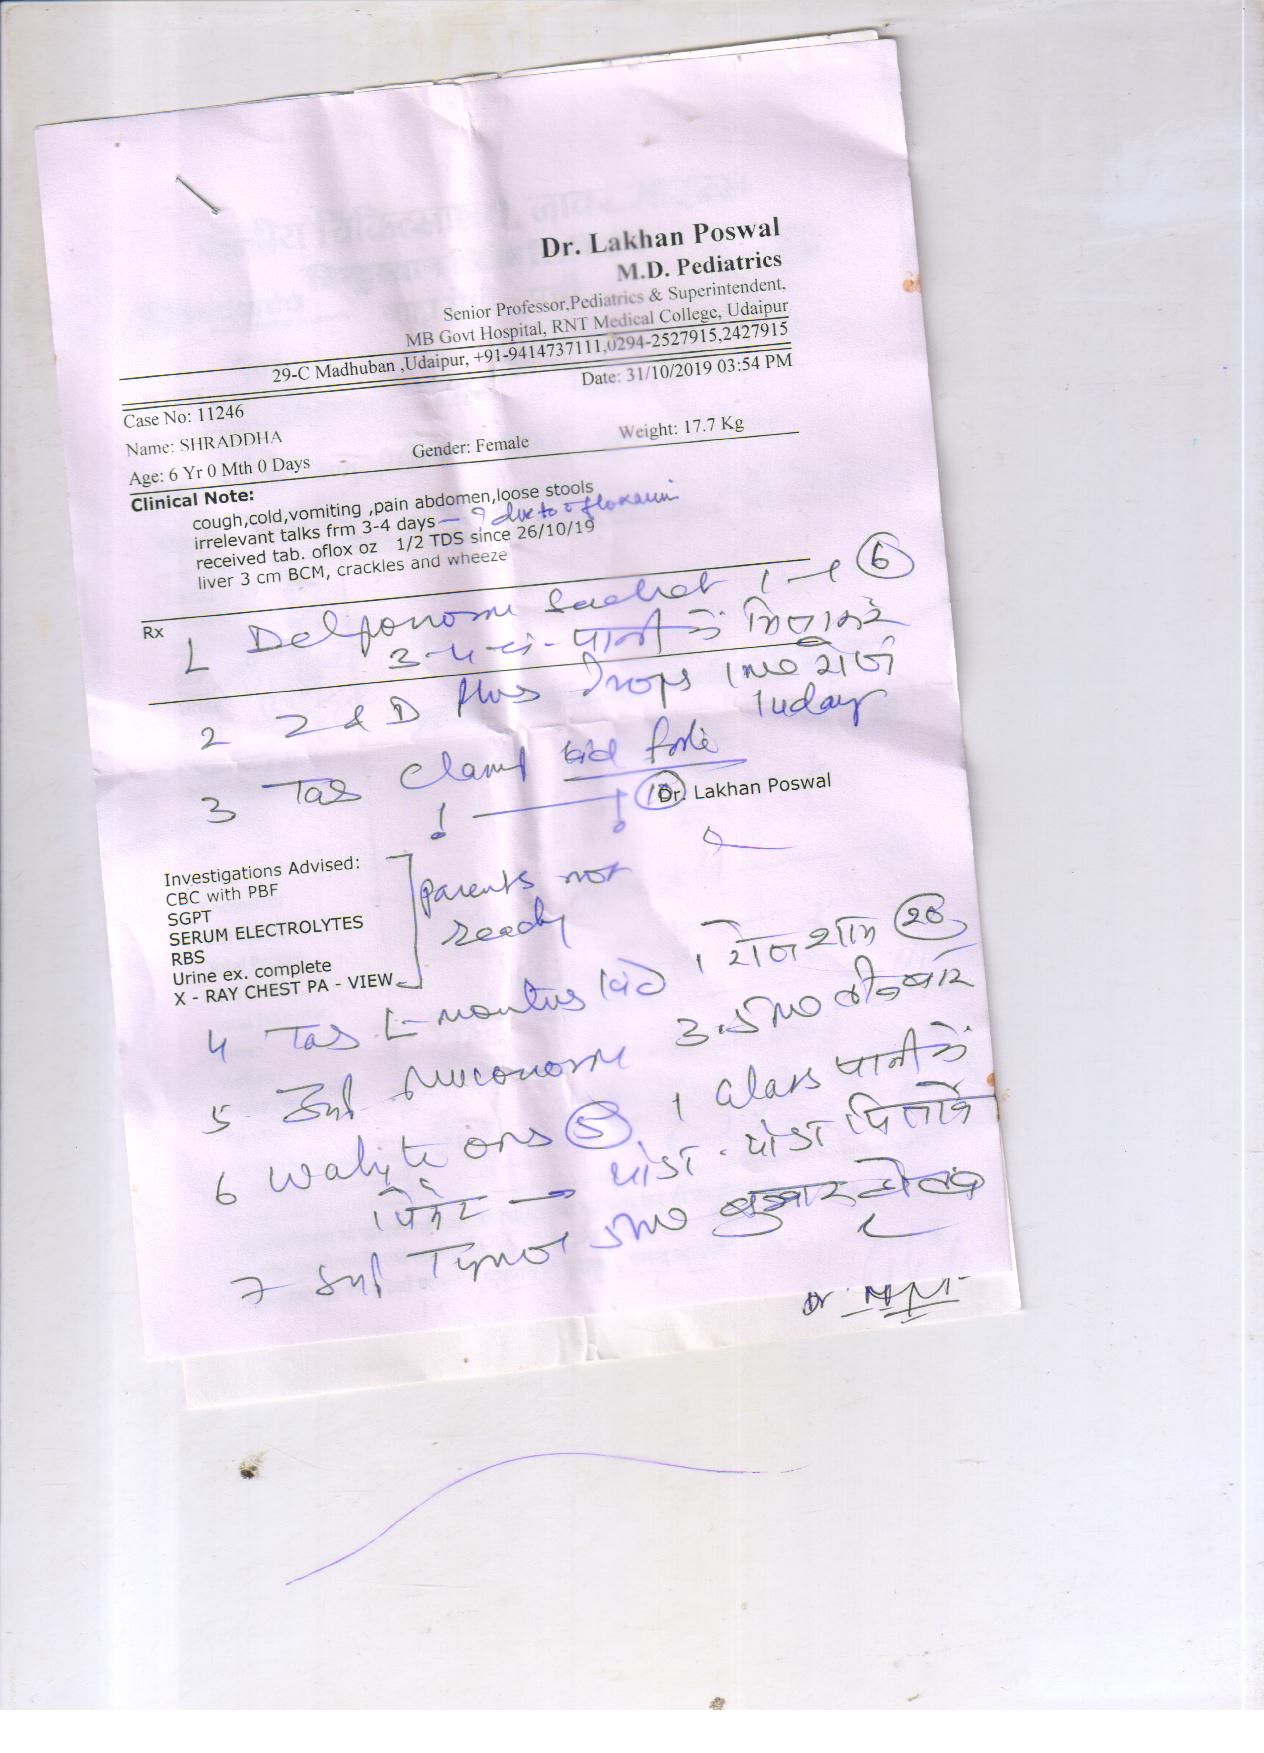 Dr. Lakhan Poswal
M.D. Pediatrics
Senior Professor,Pediatrics & Superintendent,
MB Govt Hospital, RNT Medical College, Udaipur
29-C Madhuban ,Udaipur, +91-9414737111,0294-2527915,2427915
Date: 31/10/2019 03:54 PM
Case No: 11246
Name: SHRADDHA
Gender: Female
Weight: 17.7 Kg
Age: 6 Yr 0 Mth 0 Days
Clinical Note:
cough,cold,vomiting ,pain abdomen,loose stools
irrelevant talks frm 3-4 days — ? due to ofloxacin
received tab. oflox oz 1/2 TDS since 26/10/19
liver 3 cm BCM, crackles and wheeze
Rx
1 sachet 1 — 1 (6)
पानी में मिलाकर
2 Z & D Plus Drops 1ml रोज
14day
3 Tab Clamp kid forte
(10)
Dr. Lakhan Poswal
Investigations Advised:
CBC with PBF
SGPT
SERUM ELECTROLYTES
RBS
Urine ex. complete
X - RAY CHEST PA - VIEW
parents not
ready
4 Tab L-montus kid 1 रोज शाम (28)
5 Syp Muconorm 3.5ml तीन बार
6 Walyte ors (5) 1 Glass पानी में
थोडा - थोडा पिलावे
7 Syp 5ml बुखार हो तब
Dr